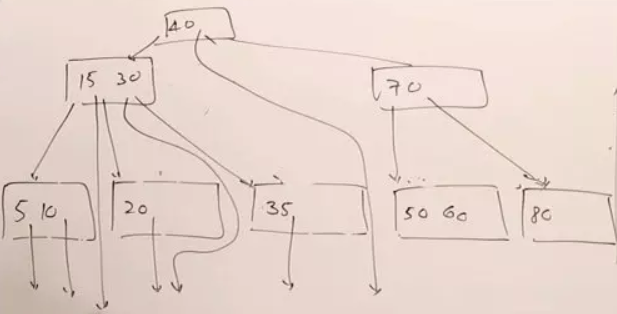 40
15 30
70
5 10
20
35
50 60
80